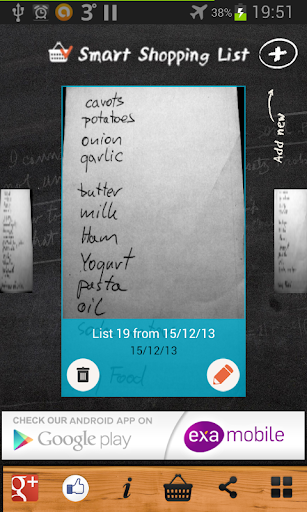 3°
38%
19:51
Smart Shopping List
Add new
cavots
potatoes
onion
garlic
butter
milk
Ham
Yogurt
pasta
oil
List 19 from 15/12/13
15/12/13
Food
CHECK OUR ANDROID APP ON
Google play
exa mobile
g+
i